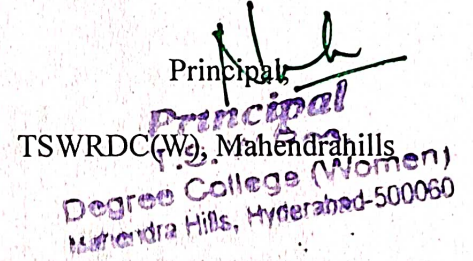 Principal,
Principal
TSWRDC(W), Mahendrahills
Degree College (Women)
Mahendra Hills, Hyderabad-500060